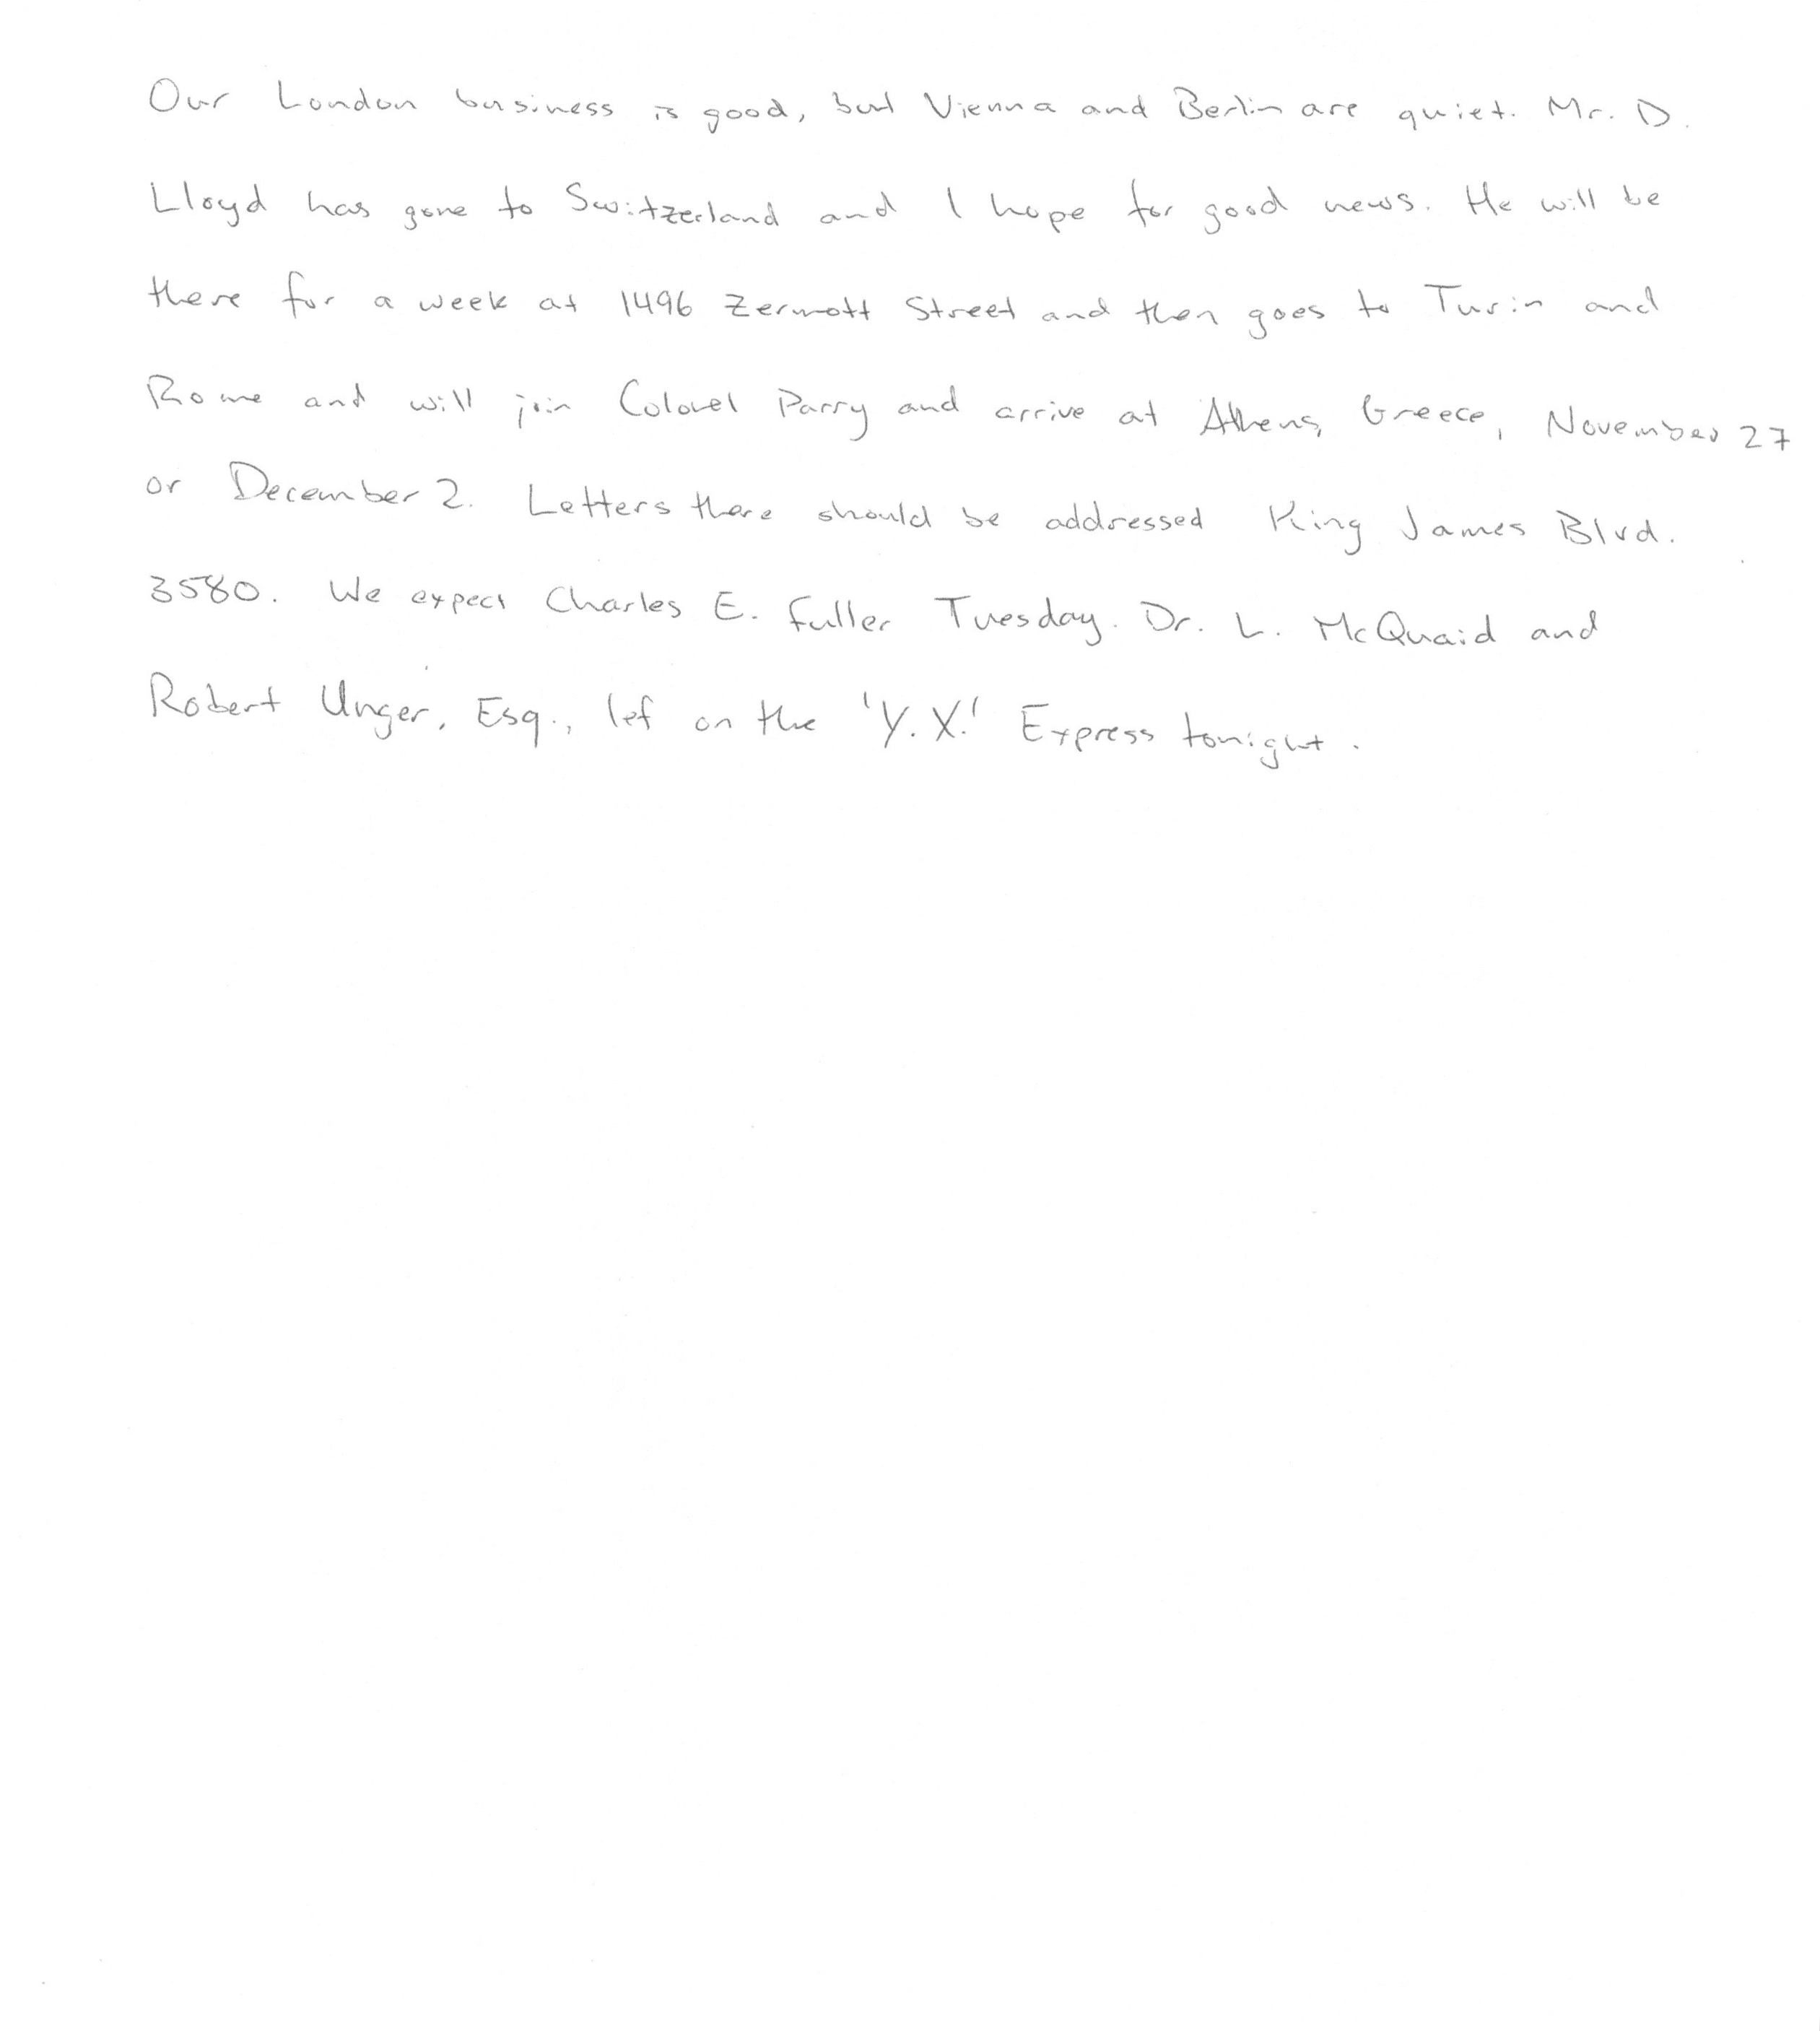 Our London business is good, but Vienna and Berlin are quiet. Mr. D.
Lloyd has gone to Switzerland and I hope for good news. He will be
there for a week at 1496 Zermott Street and then goes to Turin and
Rome and will join Colonel Parry and arrive at Athens, Greece, November 27
or December 2. Letters there should be addressed King James Blvd.
3580. We expect Charles E. Fuller Tuesday. Dr. L. McQuaid and
Robert Unger, Esq., lef on the 'Y.X.' Express tonight.